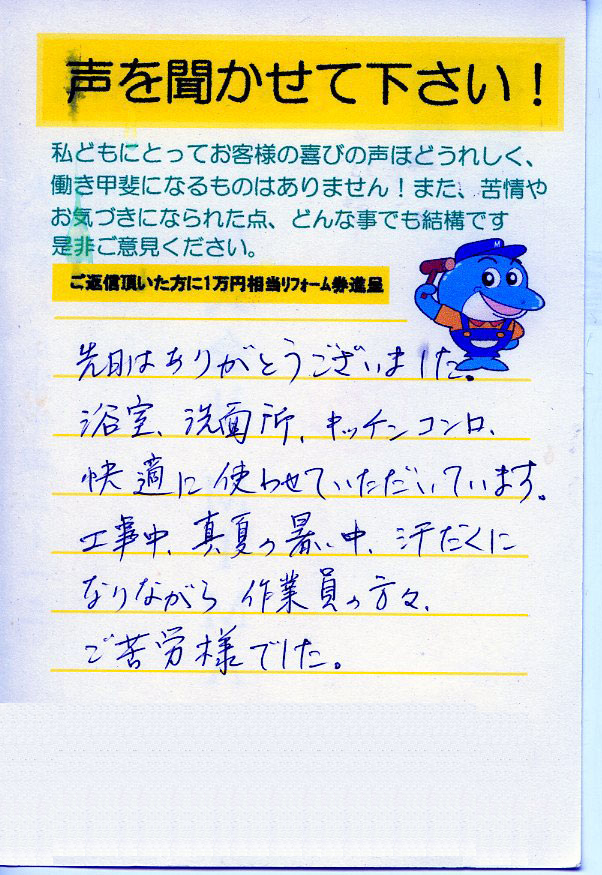 声を聞かせて下さい！
私どもにとってお客様の喜びの声ほどうれしく、
働き甲斐になるものはありません！また、苦情や
お気づきになられた点、どんな事でも結構です
是非ご意見ください。
ご返信頂いた方に1万円相当リフォーム券進呈
M
先日はありがとうございました。
浴室、洗面所、キッチンコンロ、
快適に使わせていただいています。
工事中、真夏の暑い中、汗だくに
なりながら作業員の方々、
ご苦労様でした。